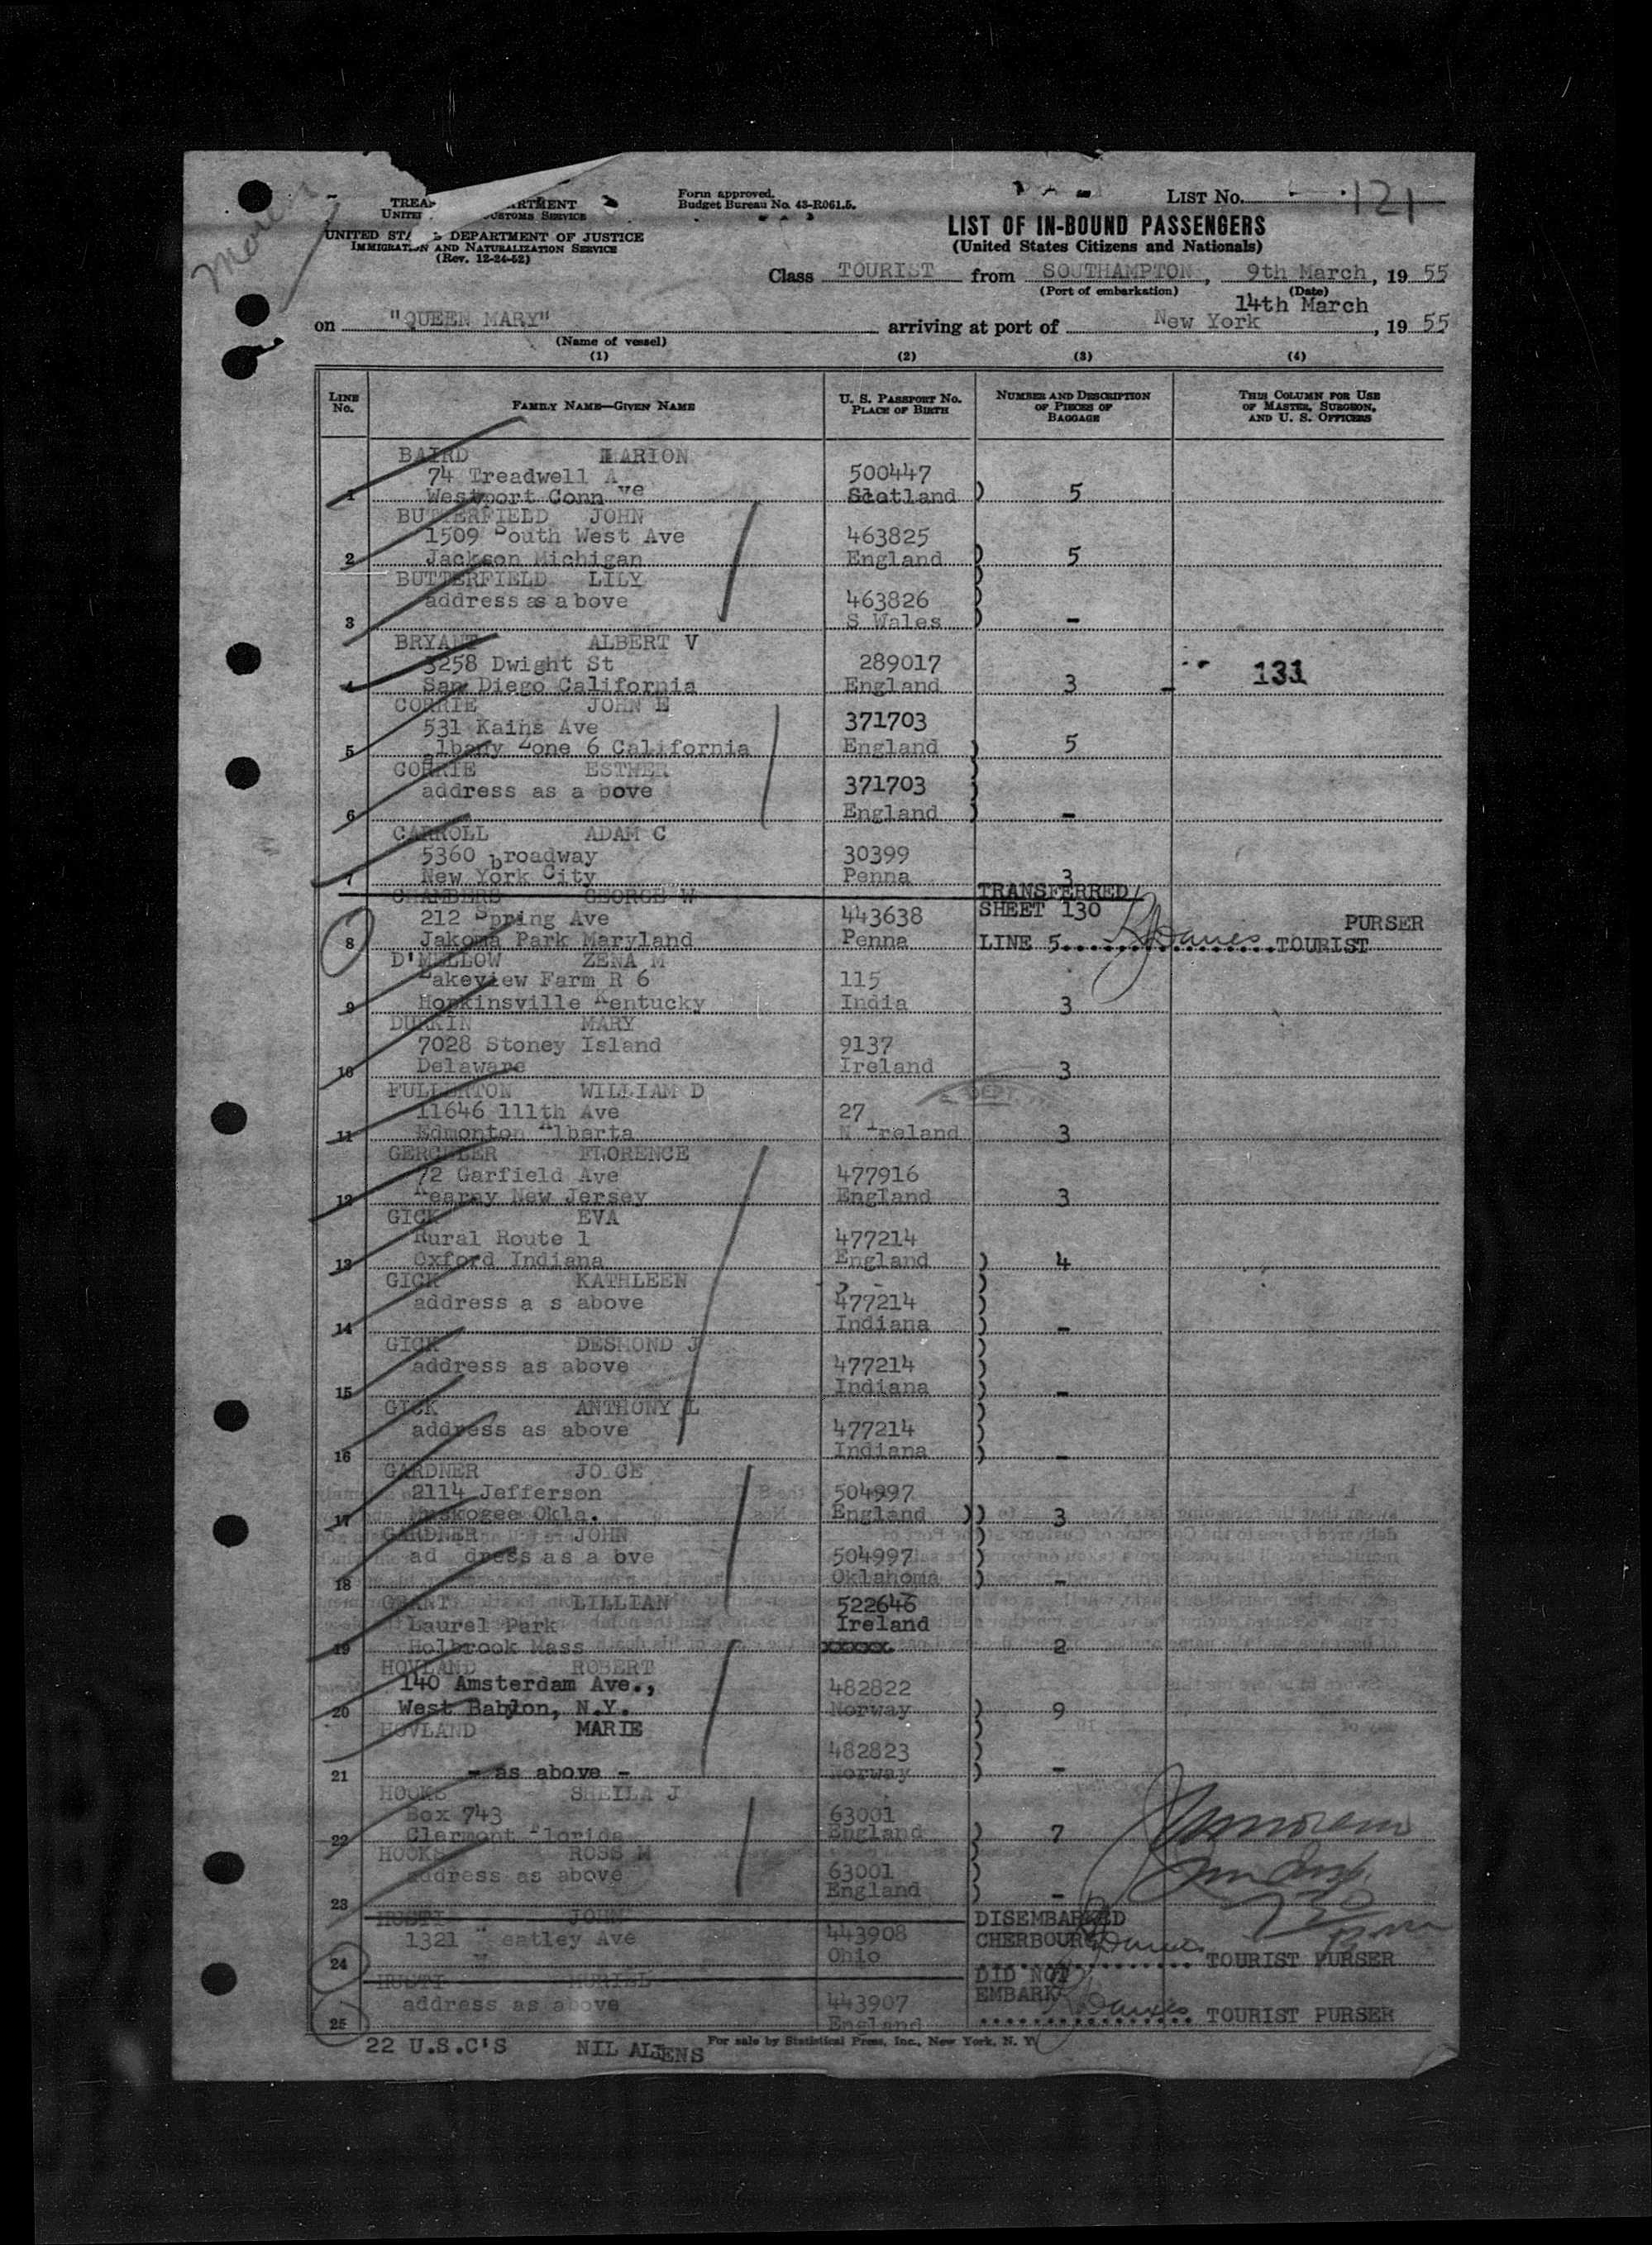 LIST No. 121
Form approved.
Budget Bureau No. 43-R061.5.
UNITED STA DEPARTMENT OF JUSTICE
IMMIGRAT N AND NATURALIZATION SERVICE
(Rev. 12-24-52)
LIST OF IN-BOUND PASSENGERS
(United States Citizens and Nationals)
Class TOURIST from SOUTHAMPTON, 9th March, 19 55
(Port of embarkation) (Date)
14th March
on "QUEEN MARY" arriving at port of New York, 19 55
(Name of vessel)
(1) (2) (3) (4)
LINE No. FAMILY NAME—GIVEN NAME U. S. PASSPORT No. PLACE OF BIRTH NUMBER AND DESCRIPTION OF PIECES OF BAGGAGE THIS COLUMN FOR USE OF MASTER, SURGEON, AND U. S. OFFICERS
BAIRD MARION
74 Treadwell Ave 500447
1 Westport Conn Scotland ) 5
BUTTERFIELD JOHN
1509 South West Ave 463825
2 Jackson Michigan England ) 5
BUTTERFIELD LILY
address as a bove 463826
3 S Wales ) -
BRYANT ALBERT V
3258 Dwight St 289017 131
4 San Diego California England 3 -
CORRIE JOHN E
531 Kains Ave 371703
5 lbany Zone 6 California England ) 5
CORRIE ESTHER
address as a bove 371703
6 England ) -
CARROLL ADAM C
5360 broadway 30399
7 New York City Penna 3
CHAMBERS GEORGE W TRANSFERRED/
212 Spring Ave 443638 SHEET 130 PURSER
8 Jakoma Park Maryland Penna LINE 5 Davies TOURIST
D'MELLOW ZENA M
Lakeview Farm R 6 115
9 Hopkinsville Kentucky India 3
DURKIN MARY
7028 Stoney Island 9137
10 Delaware Ireland 3
FULLERTON WILLIAM D
11646 111th Ave 27
11 Edmonton Alberta N Ireland 3
FLORENCE
72 Garfield Ave 477916
12 Kearny New Jersey England 3
GICK EVA
Rural Route 1 477214
13 Oxford Indiana England ) 4
GICK KATHLEEN
address a s above 477214
14 Indiana ) -
GICK DESMOND J
address as above 477214
15 Indiana ) -
GICK ANTHONY L
address as above 477214
16 Indiana ) -
GARDNER JO CE
2114 Jefferson 504997
17 Muskogee Okla. England )) 3
GARDNER JOHN
ad dress as a bve 504997
18 Oklahoma ) -
GRANT LILLIAN 522646
Laurel Park Ireland
19 Holbrook Mass xxxxx 2
HOVLAND ROBERT
140 Amsterdam Ave., 482822
20 West Babylon, N.Y. Norway ) 9
HOVLAND MARIE
482823
21 - as above - Norway ) -
HOOKS SHEILA J
Box 743 63001
22 Clermont Florida England ) 7
HOOKS ROSS M
address as above 63001
23 England ) -
HUSTI JOHN DISEMBARKED
1321 eatley Ave 443908 CHERBOURG
24 Ohio Davies TOURIST PURSER
HUSTI MURIEL DID NOT
address as above 443907 EMBARK
25 England Davies TOURIST PURSER
22 U.S.C'S NIL ALIENS For sale by Statistical Press, Inc., New York, N. Y.